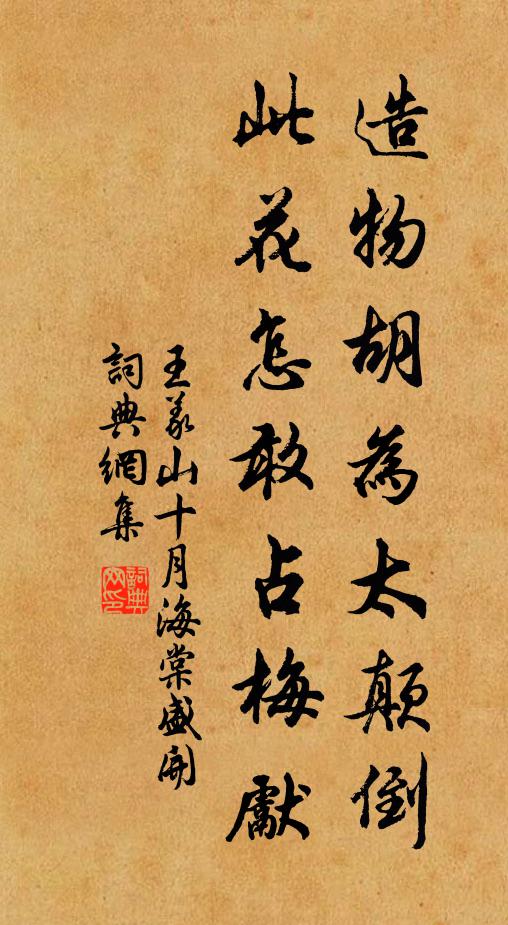 造物胡為太顛倒
此花怎敢占梅獻
王義山十月海棠盛開
詞典網集
詞典网印